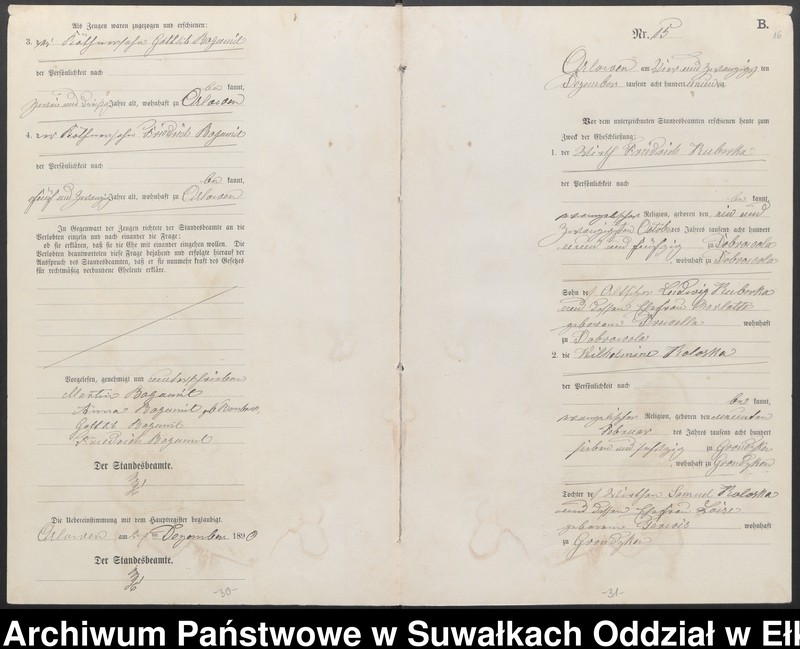 Als Zeugen waren zugezogen und erschienen:
3. der Käthnersohn Gottlieb Bogumil
der Persönlichkeit nach
kannt,
Jahre alt, wohnhaft zu Orlowen
4. der Käthnersohn Friedrich Bogumil
der Persönlichkeit nach
kannt,
fünf und zwanzig Jahre alt, wohnhaft zu Orlowen
In Gegenwart der Zeugen richtete der Standesbeamte an die
Verlobten einzeln und nach einander die Frage:
ob sie erklären, daß sie die Ehe mit einander eingehen wollen. Die
Verlobten beantworteten diese Frage bejahend und erfolgte hierauf der
Ausspruch des Standesbeamten, daß er sie nunmehr kraft des Gesetzes
für rechtmäßig verbundene Eheleute erkläre.
Vorgelesen, genehmigt und unterschrieben
Martin Bogumil
Anna Bogumil geb.
Gottlieb Bogumil
Friedrich Bogumil
Der Standesbeamte.
Die Uebereinstimmung mit dem Hauptregister beglaubigt.
Orlowen am Dezember 1890
Der Standesbeamte.
-30-
B.
16
Nr. 15
Orlowen am vier und zwanzigsten
Dezember tausend acht hundert neunzig
Vor dem unterzeichneten Standesbeamten erschienen heute zum
Zweck der Eheschließung:
1. der Wirth Friedrich Kuberka
der Persönlichkeit nach
kannt,
evangelischer Religion, geboren den ein und
zwanzigsten October des Jahres tausend acht hundert
neun und fünfzig zu Dobrowola
, wohnhaft zu Dobrowola
Sohn des Altsitzer Ludwig Kuberka
und dessen Ehefrau
geborene wohnhaft
zu Dobrowola
2. die Wilhelmine Koloska
der Persönlichkeit nach
kannt,
evangelischer Religion, geboren den neunten
Februar des Jahres tausend acht hundert
sieben und sechszig zu Grondzken
, wohnhaft zu Grondzken
Tochter des Wirthen Samuel Koloska
und dessen Ehefrau
geborene wohnhaft
zu Grondzken
-31-
Archiwum Państwowe w Suwałkach Oddział w Ełk